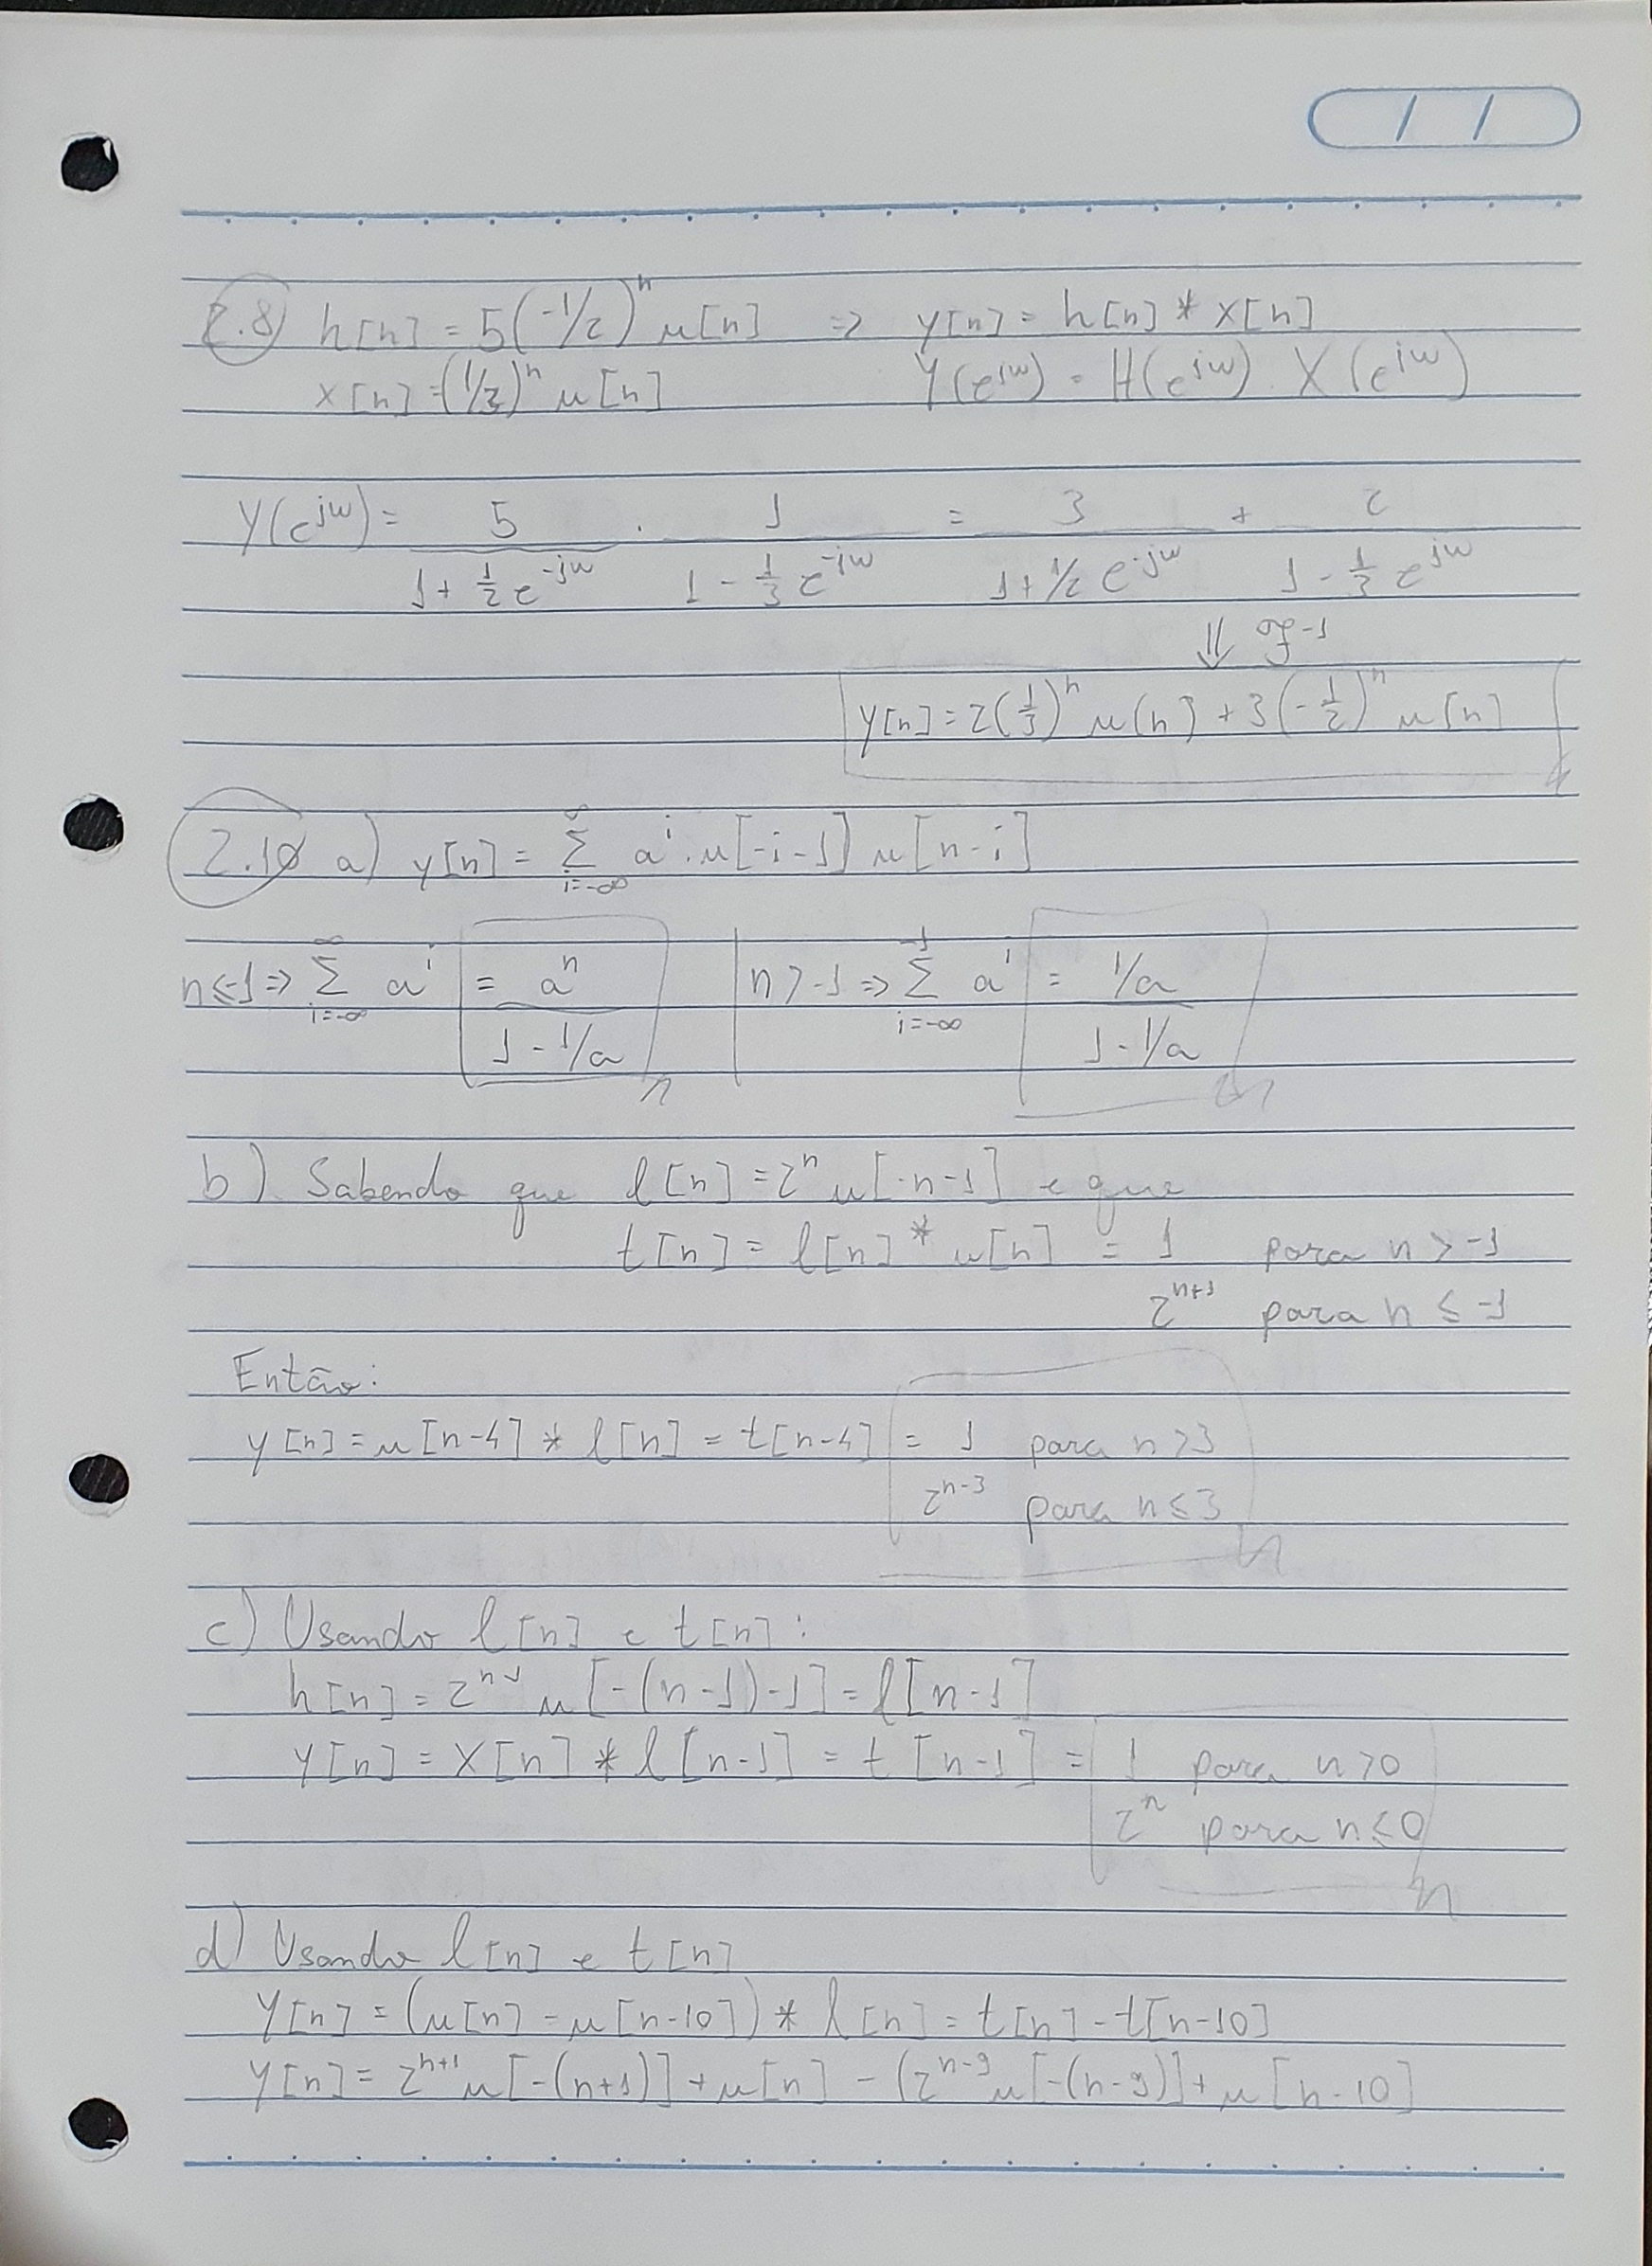 2.8) h[n] = 5(-1/2)^n u[n] => y[n] = h[n] * x[n]
x[n] = (1/3)^n u[n] Y(e^jw) = H(e^jw) . X(e^jw)
Y(e^jw) = 5/(1 + 1/2 e^-jw) . 1/(1 - 1/3 e^-jw) = 3/(1 + 1/2 e^-jw) + 2/(1 - 1/3 e^jw)
⇓ F^-1
y[n] = 2(1/3)^n u[n] + 3(-1/2)^n u[n]
2.10 a) y[n] = Σ_{i=-∞}^{∞} a^i . u[-i-1] u[n-i]
n ≤ -1 => Σ_{i=-∞}^{∞} a^i = a^n/(1 - 1/a) | n > -1 => Σ_{i=-∞}^{-1} a^i = (1/a)/(1 - 1/a)
b) Sabendo que l[n] = 2^n u[-n-1] e que
t[n] = l[n] * u[n] = 1 para n > -1
2^{n+1} para n ≤ -1
Então:
y[n] = u[n-4] * l[n] = t[n-4] = 1 para n > 3
2^{n-3} para n ≤ 3
c) Usando l[n] e t[n]:
h[n] = 2^{n-1} u[-(n-1)-1] = l[n-1]
y[n] = x[n] * l[n-1] = t[n-1] = 1 para n > 0
2^n para n ≤ 0
d) Usando l[n] e t[n]
y[n] = (u[n] - u[n-10]) * l[n] = t[n] - t[n-10]
y[n] = 2^{n+1} u[-(n+1)] + u[n] - (2^{n-9} u[-(n-9)] + u[n-10]